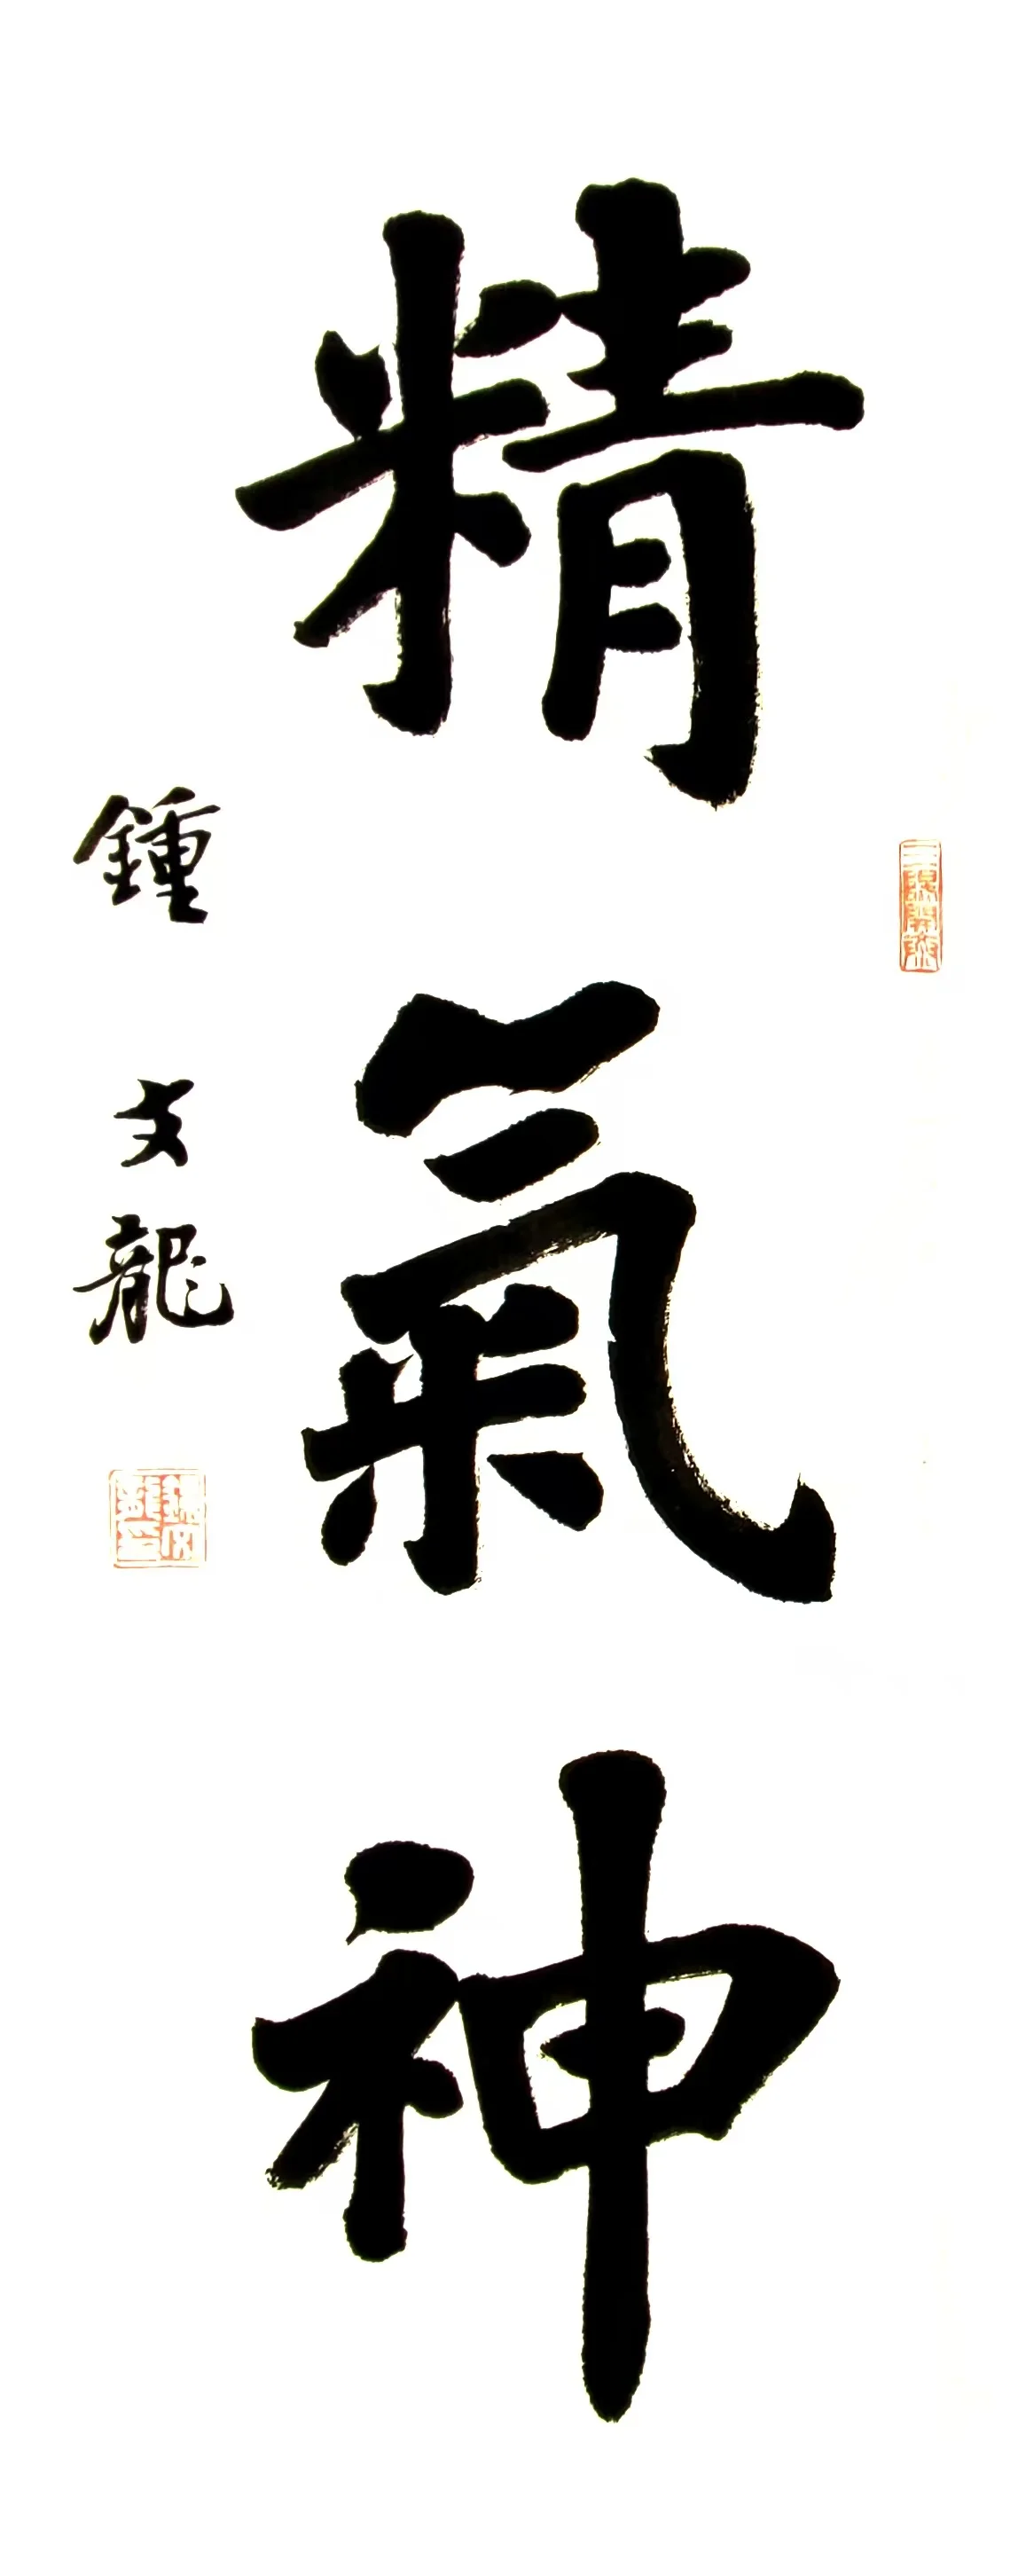 精氣神
鍾文龍